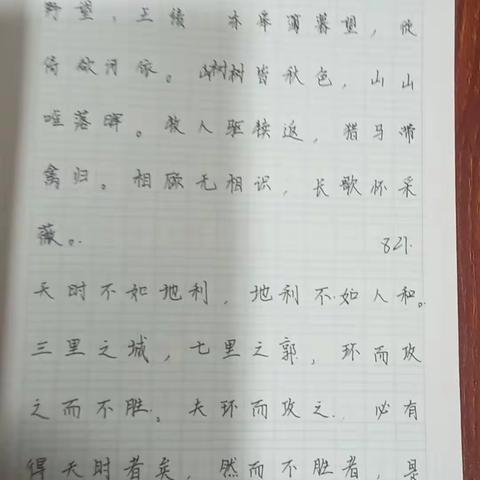 野望，王绩 东皋薄暮望，徙
倚欲何依。树树皆秋色，山山
唯落晖。牧人驱犊返，猎马带
禽归。相顾无相识，长歌怀采
薇。 821.
天时不如地利，地利不如人和。
三里之城，七里之郭，环而攻
之而不胜。夫环而攻之. 必有
得天时者矣，然而不胜者，是